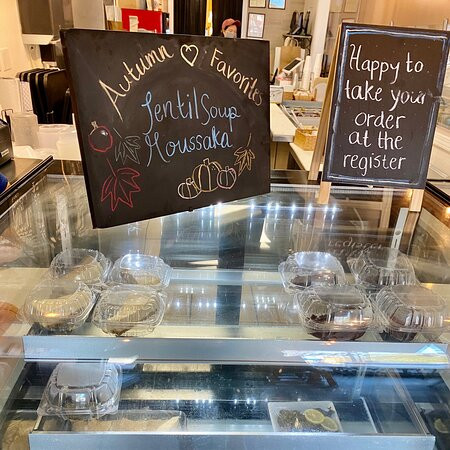 Autumn ♡ Favorites
Lentil Soup
Moussaka
Happy to
take your
order
at the
register